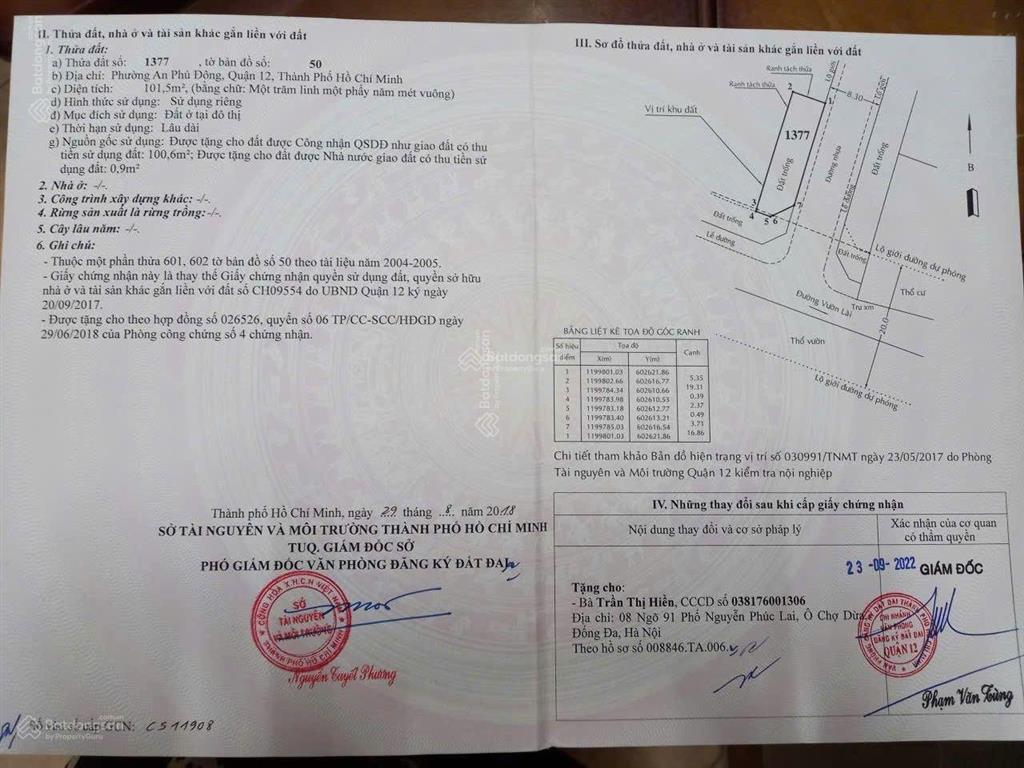 II. Thửa đất, nhà ở và tài sản khác gắn liền với đất
1. Thửa đất:
a) Thửa đất số: 1377 , tờ bản đồ số: 50
b) Địa chỉ: Phường An Phú Đông, Quận 12, Thành Phố Hồ Chí Minh
c) Diện tích: 101,5m², (bằng chữ: Một trăm linh một phẩy năm mét vuông)
d) Hình thức sử dụng: Sử dụng riêng
đ) Mục đích sử dụng: Đất ở tại đô thị
e) Thời hạn sử dụng: Lâu dài
g) Nguồn gốc sử dụng: Được tặng cho đất được Công nhận QSDĐ như giao đất có thu
tiền sử dụng đất: 100,6m²; Được tặng cho đất được Nhà nước giao đất có thu tiền sử
dụng đất: 0,9m²
2. Nhà ở: -/-.
3. Công trình xây dựng khác: -/-.
4. Rừng sản xuất là rừng trồng:-/-.
5. Cây lâu năm: -/-.
6. Ghi chú:
- Thuộc một phần thửa 601, 602 tờ bản đồ số 50 theo tài liệu năm 2004-2005.
- Giấy chứng nhận này là thay thế Giấy chứng nhận quyền sử dụng đất, quyền sở hữu
nhà ở và tài sản khác gắn liền với đất số CH09554 do UBND Quận 12 ký ngày
20/09/2017.
- Được tặng cho theo hợp đồng số 026526, quyển số 06 TP/CC-SCC/HĐGD ngày
29/06/2018 của Phòng công chứng số 4 chứng nhận.
Thành phố Hồ Chí Minh, ngày 29 tháng 8 năm 2018
SỞ TÀI NGUYÊN VÀ MÔI TRƯỜNG THÀNH PHỐ HỒ CHÍ MINH
TUQ. GIÁM ĐỐC SỞ
PHÓ GIÁM ĐỐC VĂN PHÒNG ĐĂNG KÝ ĐẤT ĐAI
CỘNG HÒA X.H.C.N VIỆT NAM
SỞ
TÀI NGUYÊN
VÀ MÔI TRƯỜNG
THÀNH PHỐ HỒ CHÍ MINH
Nguyễn Tuyết Phương
GCN: CS11908
III. Sơ đồ thửa đất, nhà ở và tài sản khác gắn liền với đất
Ranh tách thửa
Ranh tách thửa
Lộ giới
8.30
Lộ giới
Vị trí khu đất
2
1
1377
Đất trống
Đường nhựa
Đất trống
Lề đường
B
3
4
5
6
7
Đất trống
Lề đường
Đất trống
Lộ giới đường dự phóng
Thổ cư
Trụ xm
Đường Vườn Lài
20.0
Thổ vườn
Lộ giới đường dự phóng
BẢNG LIỆT KÊ TỌA ĐỘ GÓC RANH
Số hiệu điểm Tọa độ Cạnh
X(m) Y(m)
1 1199801.03 602621.86
5.35
2 1199802.66 602616.77
19.31
3 1199784.34 602610.66
0.39
4 1199783.98 602610.53
2.37
5 1199783.18 602612.77
0.49
6 1199783.40 602613.21
3.71
7 1199785.03 602616.54
16.86
1 1199801.03 602621.86
Chi tiết tham khảo Bản đồ hiện trạng vị trí số 030991/TNMT ngày 23/05/2017 do Phòng
Tài nguyên và Môi trường Quận 12 kiểm tra nội nghiệp
IV. Những thay đổi sau khi cấp giấy chứng nhận
Nội dung thay đổi và cơ sở pháp lý
Xác nhận của cơ quan
có thẩm quyền
23-09-2022 GIÁM ĐỐC
Tặng cho:
- Bà Trần Thị Hiền, CCCD số 038176001306
Địa chỉ: 08 Ngõ 91 Phố Nguyễn Phúc Lai, Ô Chợ Dừa,
Đống Đa, Hà Nội
Theo hồ sơ số 008846.TA.006.
CHI NHÁNH
VĂN PHÒNG
ĐĂNG KÝ ĐẤT ĐAI
QUẬN 12
Phạm Văn Tùng
Batdongsan
by PropertyGuru
Batdongsan
Batdongsan
by PropertyGuru
Batdongsan.com.vn
by PropertyGuru